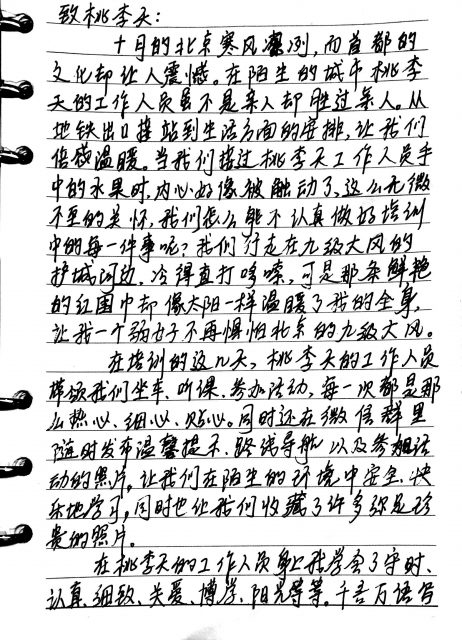 致桃李天:
十月的北京寒风凛冽,而首都的
文化却让人震憾。在陌生的城市桃李
天的工作人员虽不是亲人却胜过亲人。从
地铁出口接站到生活方面的安排,让我们
倍感温暖。当我们接过桃李天工作人员手
中的水果时,内心好像被触动了,这么无微
不至的关怀,我们怎么能不认真做好培训
中的每一件事呢?我们行走在九级大风的
护城河边,冷得直打哆嗦,可是那条鲜艳
的红围巾却像太阳一样温暖了我的全身,
让我一个弱女子不再惧怕北京的九级大风。
在培训的这几天,桃李天的工作人员
带领我们坐车、听课、参加活动,每一次都是那
么热心、细心、贴心。同时还在微信群里
随时发布温馨提示、路线导航以及参加活
动的照片,让我们在陌生的环境中安全、快
乐地学习,同时也让我们收藏了许多弥足珍
贵的照片。
在桃李天的工作人员身上我学会了守时、
认真、细致、关爱、博学、阳光等等。千言万语写